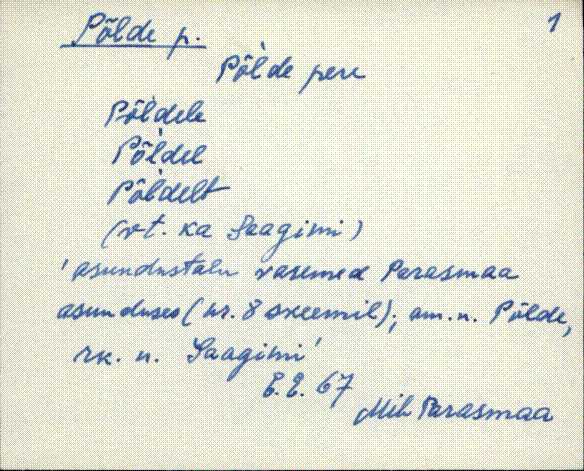 Põlde p. 1
Põl̀de pere
Põl̀dele
Põl̀del
Põl̀delt
(vt. ka Saagimi)
'asundustalu vasemed Parasmaa
asunduses (nr. 8 skeemil); am. n. Põlde,
rk. n. Saagimi'
E.E. 67
Mih Parasmaa